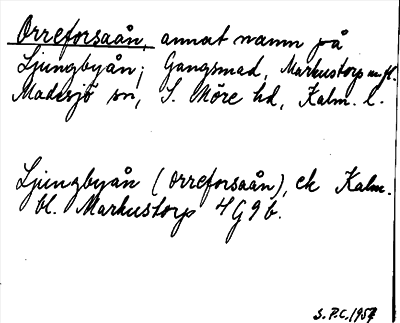 Orreforsaån, annat namn på
Ljungbyån; Gangsmad, Markustorp m fl.
Madesjö sn, S. Möre hd, Kalm. l.
Ljungbyån (Orreforsaån), ek Kalm.
bl. Markustorp 4G9b.
S.P.C. 1957